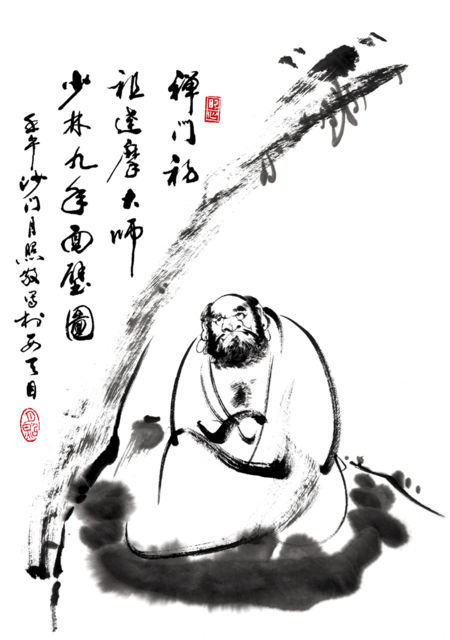 禅门初
祖達摩大師
少林九年面壁圖
壬午沙门月照敬写於西天目